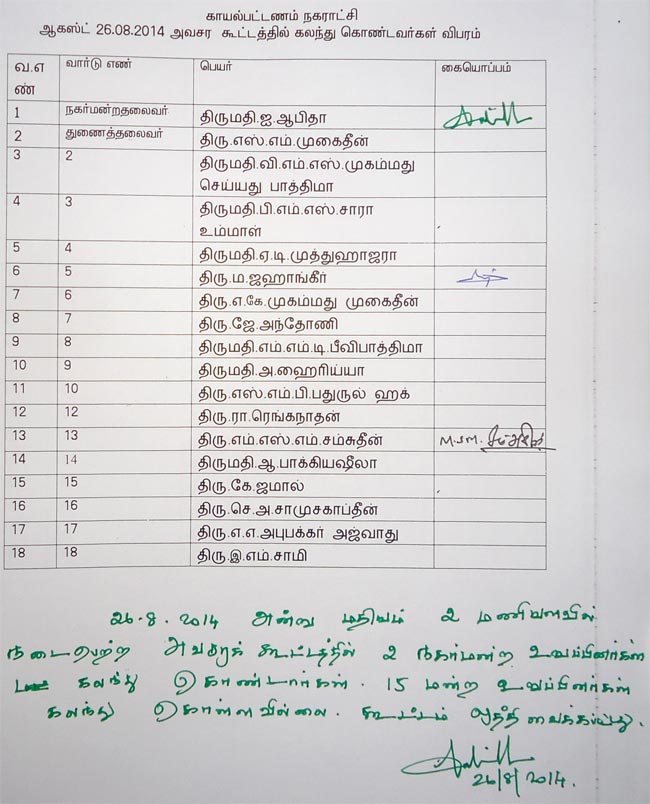 காயல்பட்டணம் நகராட்சி
ஆகஸ்ட் 26.08.2014 அவசர கூட்டத்தில் கலந்து கொண்டவர்கள் விபரம்
வ.எண் வார்டு எண் பெயர் கையொப்பம்
1 நகர்மன்றதலைவர் திருமதி.ஐ.ஆபிதா
2 துணைத்தலைவர் திரு.எஸ்.எம்.முகைதீன்
3 2 திருமதி.வி.எம்.எஸ்.முகம்மது
செய்யது பாத்திமா
4 3 திருமதி.பி.எம்.எஸ்.சாரா
உம்மாள்
5 4 திருமதி.ஏ.டி.முத்துஹாஜரா
6 5 திரு.ம.ஜஹாங்கீர்
7 6 திரு.எ.கே.முகம்மது முகைதீன்
8 7 திரு.ஜே.அந்தோணி
9 8 திருமதி.எம்.எம்.டி.பீவிபாத்திமா
10 9 திருமதி.அ.ஹைரிய்யா
11 10 திரு.எஸ்.எம்.பி.பதுருல் ஹக்
12 12 திரு.ரா.ரெங்கநாதன்
13 13 திரு.எம்.எஸ்.எம்.சம்சுதீன் M.S.M.
14 14 திருமதி.ஆ.பாக்கியஷீலா
15 15 திரு.கே.ஜமால்
16 16 திரு.செ.அ.சாமுசகாப்தீன்
17 17 திரு.எ.எ.அபுபக்கர் அஜ்வாது
18 18 திரு.இ.எம்.சாமி
26.8.2014 அன்று மதியம் 2 மணியளவில்
நடைபெற்ற அவசரக் கூட்டத்தில் 2 நகர்மன்ற உறுப்பினர்கள்
கலந்து கொண்டார்கள். 15 மன்ற உறுப்பினர்கள்
கலந்து கொள்ளவில்லை. கூட்டம் ஒத்தி வைக்கப்பட்டது.
26/8/2014.